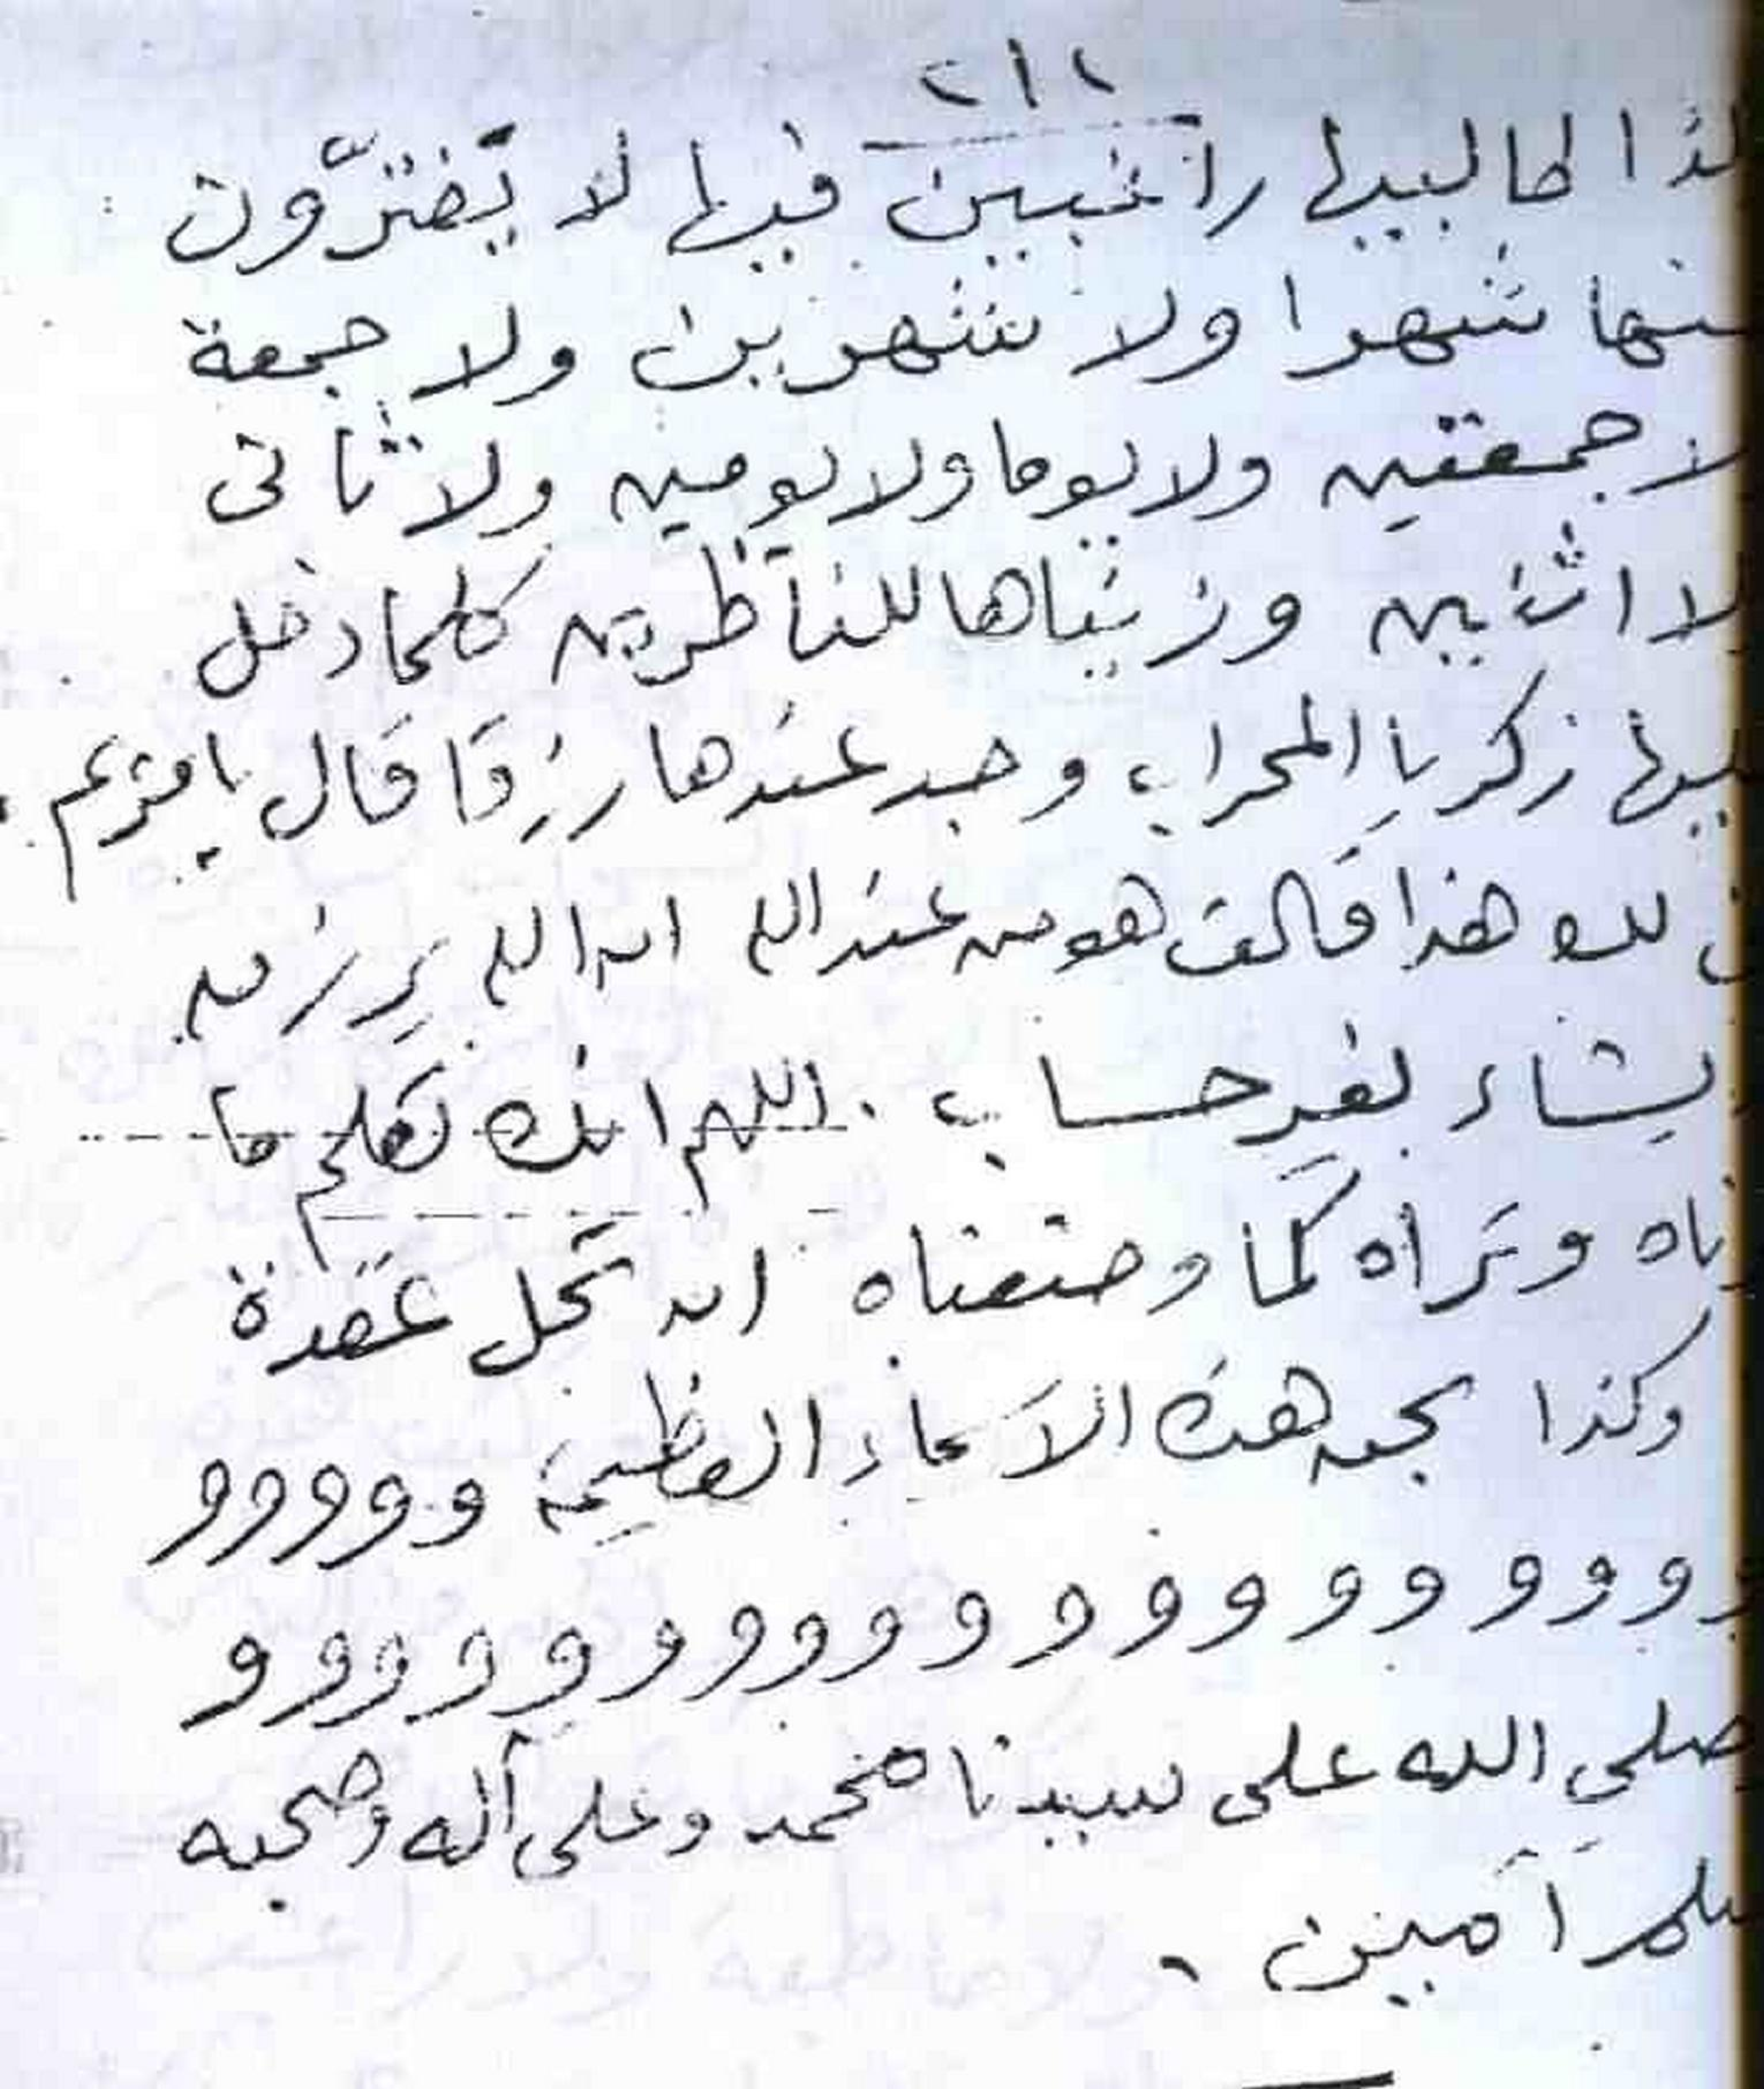 ٢١٢
لذا طالبيها راغبين فيها لا يفترّون
منها شهرا ولا شهرين ولا جمعة
لا جمعتين ولا يوما ولا يومين ولا ثانى
لا اثنين وزيناها للناظرين كلما دخل
عليها زكريا المحراب وجد عندها رزقا قال يا مريم
لك هذا قالت هو من عند الله ان الله يرزق
يشاء بغير حساب . اللهم انك تعلم ما
ناه وتراه كما وضعناه ان تحل عقدة
وكذا بحق هذه الاسماء العظيمة و و و و و و
و و و و و و و و و و و و و و و و و و و و و
صلى الله على سيدنا محمد وعلى آله وصحبه
سلم آمين .